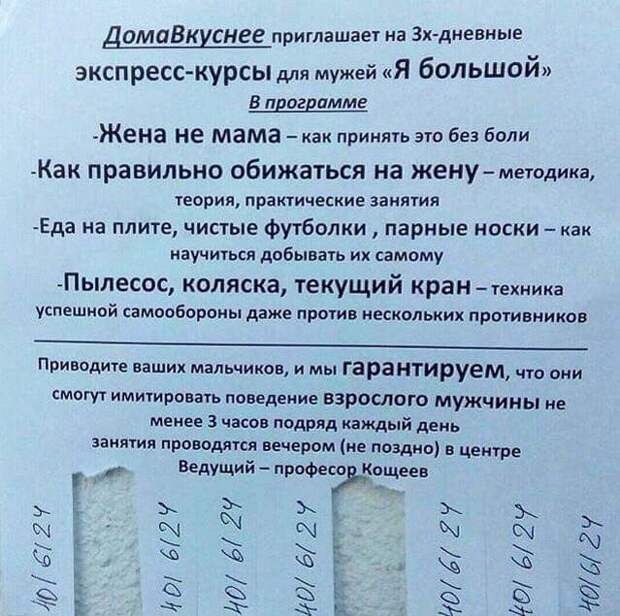 ДомаВкуснее приглашает на 3х-дневные
экспресс-курсы для мужей «Я большой»
В программе
-Жена не мама – как принять это без боли
-Как правильно обижаться на жену – методика,
теория, практические занятия
-Еда на плите, чистые футболки , парные носки – как
научиться добывать их самому
-Пылесос, коляска, текущий кран – техника
успешной самообороны даже против нескольких противников
Приводите ваших мальчиков, и мы гарантируем, что они
смогут имитировать поведение взрослого мужчины не
менее 3 часов подряд каждый день
занятия проводятся вечером (не поздно) в центре
Ведущий – професор Кощеев
401 6/24
401 6/24
401 6/24
401 6/24
401 6/24
401 6/24
401 6/24